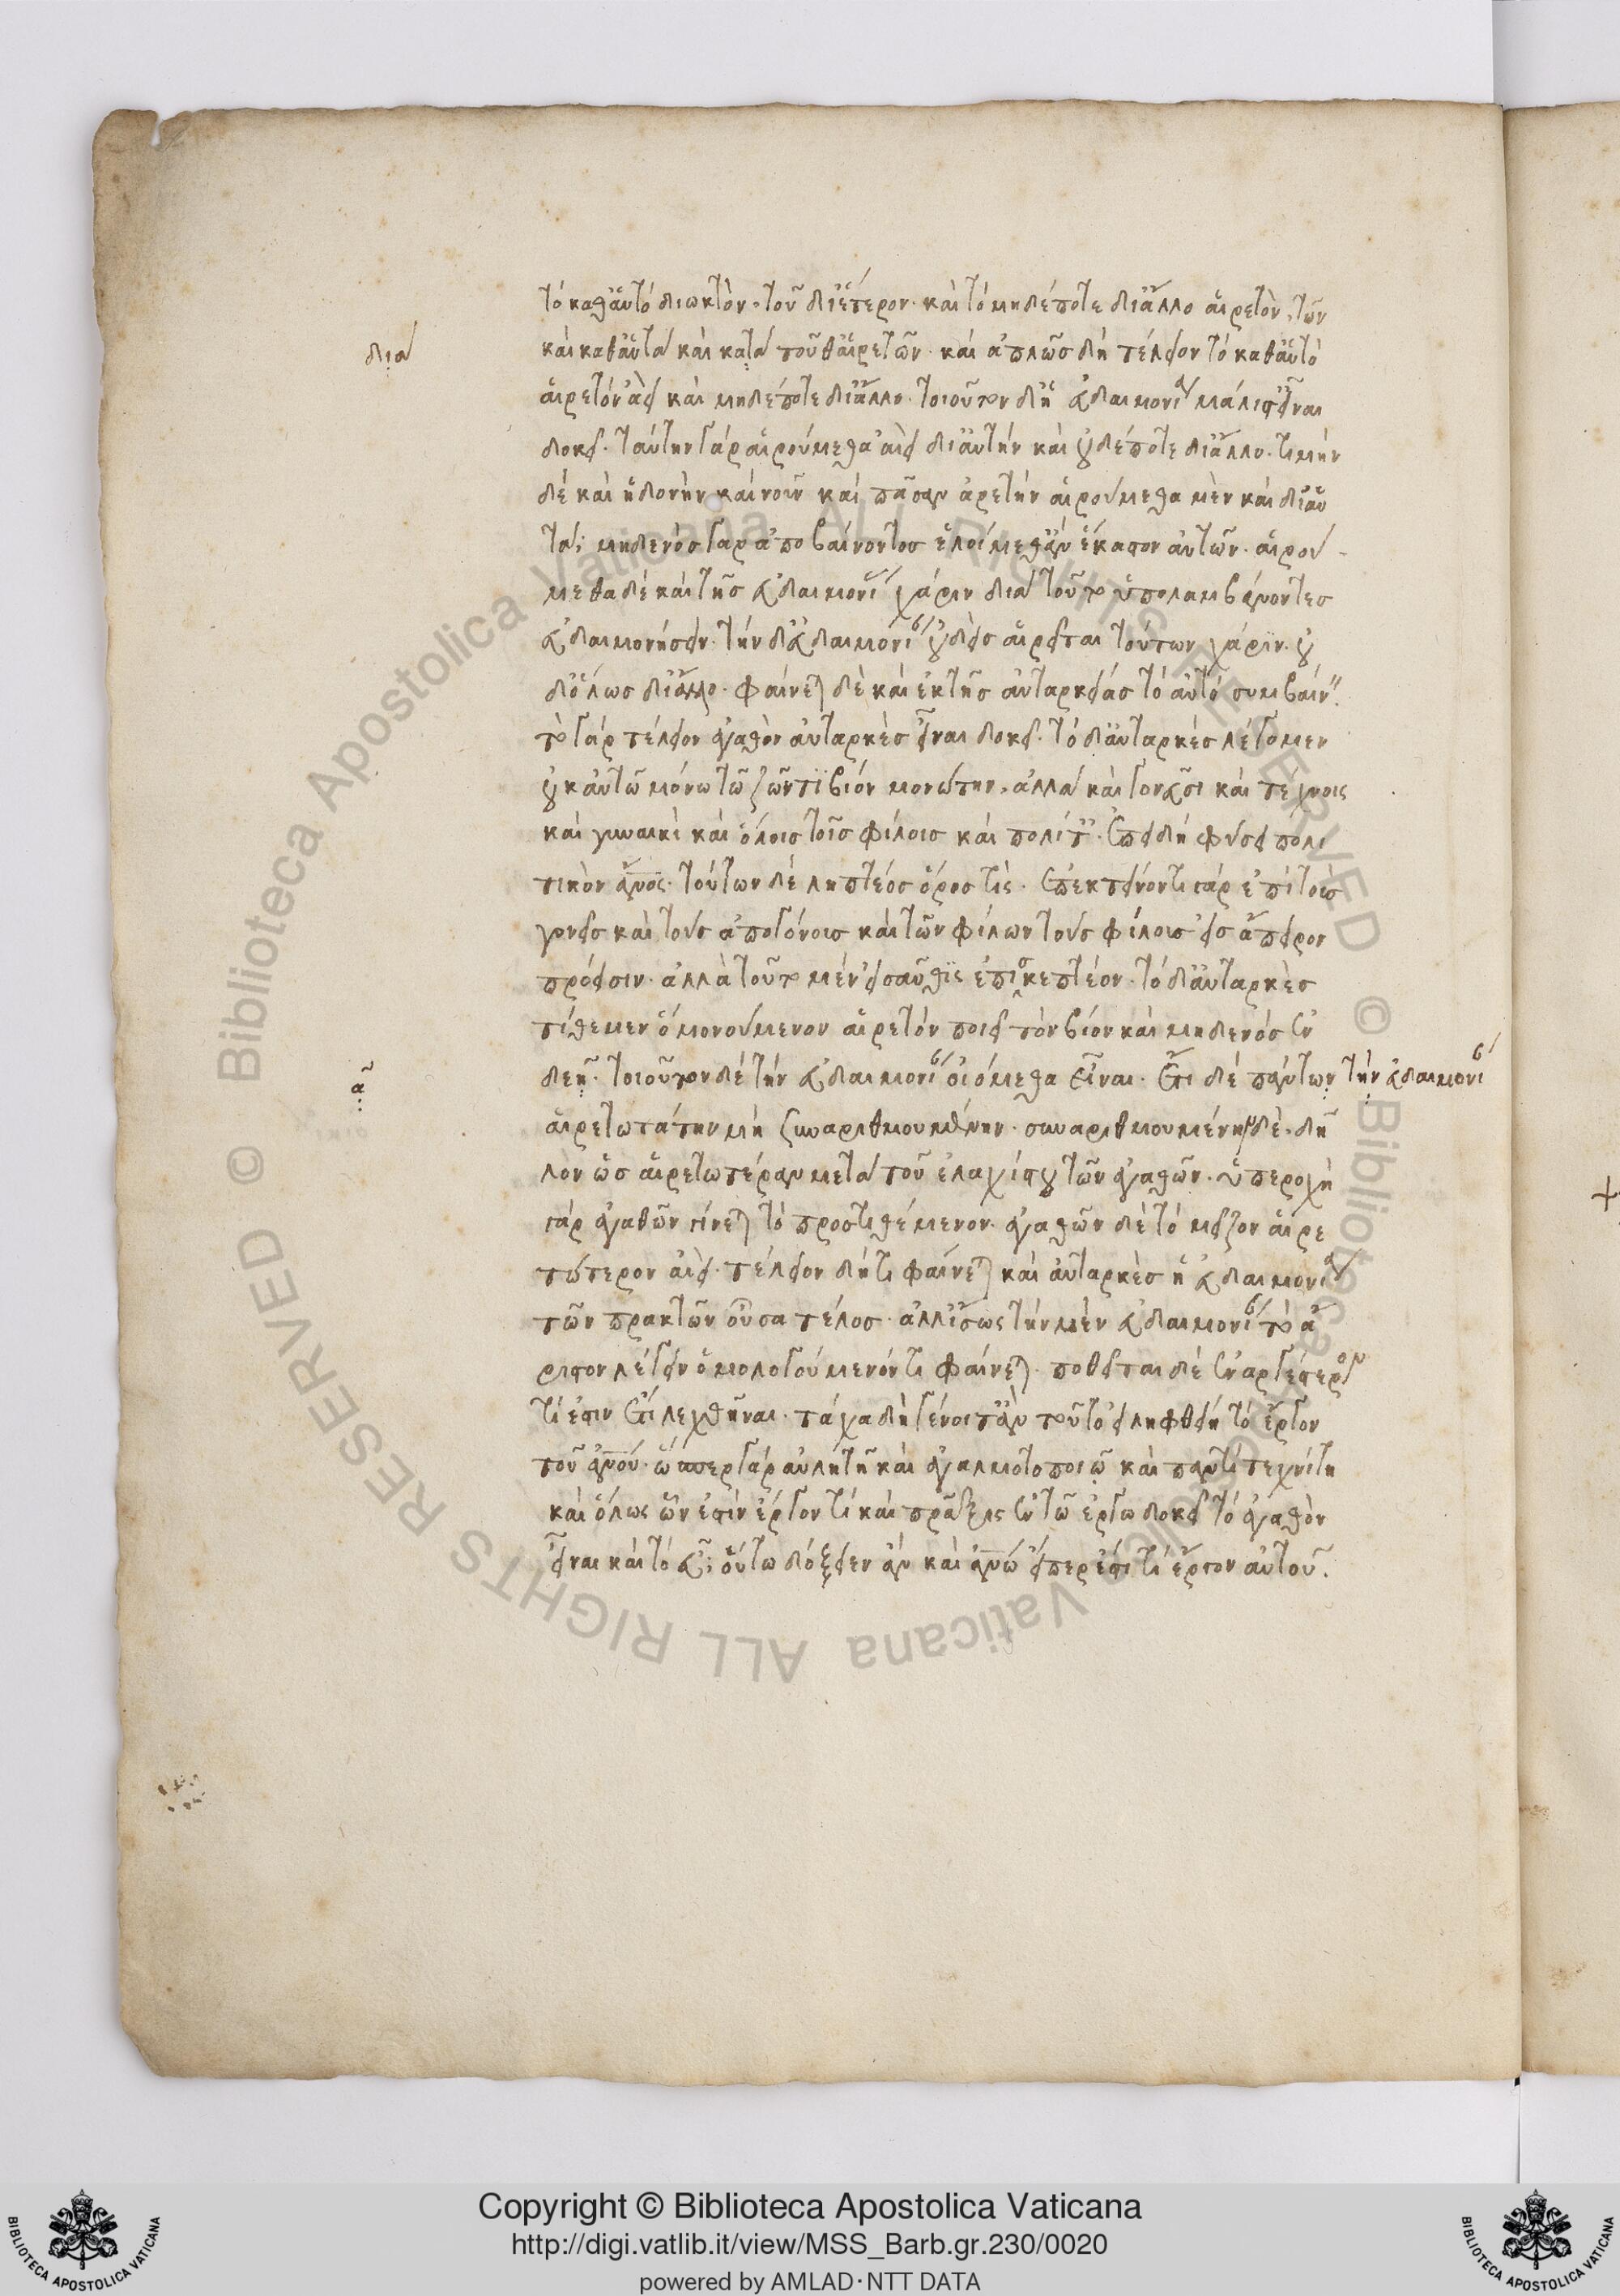 τὸ καθ' αὑτὸ διωκτὸν, τοῦ δι' ἕτερον· καὶ τὸ μηδέποτε δι' ἄλλο αἱρετὸν, τῶν
δια
καὶ καθ' αὑτὰ καὶ κατὰ τοῦθ' αἱρετῶν· καὶ ἁπλῶς δὴ τέλειον τὸ καθ' αὑτὸ
αἱρετὸν ἀεὶ καὶ μηδέποτε δι' ἄλλο. τοιοῦτον δ' ἡ εὐδαιμονία μάλιστ' εἶναι
δοκεῖ. ταύτην γὰρ αἱρούμεθα αἰεὶ δι' αὐτὴν καὶ οὐδέποτε δι' ἄλλο. τιμὴν
δὲ καὶ ἡδονὴν καὶ νοῦν καὶ πᾶσαν ἀρετὴν αἱρούμεθα μὲν καὶ δι' αὐ
τά· μηδενὸς γὰρ ἀποβαίνοντος ἑλοίμεθ' ἂν ἕκαστον αὐτῶν. αἱρού-
μεθα δὲ καὶ τῆς εὐδαιμονί χάριν διὰ τοῦτο ὑπολαμβάνοντες
εὐδαιμονήσειν. τὴν δ' εὐδαιμονίαν οὐδεὶς αἱρεῖται τούτων χάριν. οὐ
δ' ὅλως δι' ἄλλο. φαίνεται δὲ καὶ ἐκ τῆς αὐταρκείας τὸ αὐτὸ συμβαίν.
τὸ γὰρ τέλειον ἀγαθὸν αὔταρκες εἶναι δοκεῖ. τὸ δ' αὔταρκες λέγομεν
οὐκ αὐτῶ μόνω τῶ ζῶντι βίον μονώτην, ἀλλὰ καὶ γονεῦσι καὶ τέκνοις
καὶ γυναικὶ καὶ ὅλοις τοῖς φίλοις καὶ πολίτ. ἐπειδὴ φύσει πολι
τικὸν ἄνος. τούτων δὲ ληπτέος ὅρος τίς. ἐπεκτείνοντι γὰρ ἐπὶ τοὺς
γονεῖς καὶ τοὺς ἀπογόνοις καὶ τῶν φίλων τοὺς φίλοις εἰς ἄπειρον
πρόεισιν. ἀλλὰ τοῦτο μὲν εἰσαῦθις ἐπισκεπτέον. τὸ δ' αὔταρκες
τίθεμεν ὃ μονούμενον αἱρετὸν ποιεῖ τὸν βίον καὶ μηδενὸς ἐν
δεῆ. τοιοῦτον δὲ τὴν εὐδαιμονίαν οἰόμεθα εἶναι. ἔτι δὲ πάντων τὴν εὐδαιμονίαν
αἱρετωτάτην μὴ συναριθμουμένην. συναριθμουμένην δὲ, δῆ
λον ὡς αἱρετωτέραν μετὰ τοῦ ἐλαχίστου τῶν ἀγαθῶν. ὑπεροχὴ
γὰρ ἀγαθῶν γίνεται τὸ προστιθέμενον. ἀγαθῶν δὲ τὸ μεῖζον αἱρε
τώτερον αἰεί. τέλειον δή τι φαίνεται καὶ αὔταρκες ἡ εὐδαιμονία
τῶν πρακτῶν οὖσα τέλος. ἀλλ' ἴσως τὴν μὲν εὐδαιμονίαν τὸ ἄ
ριστον λέγειν ὁμολογούμενόν τι φαίνεται. ποθεῖται δὲ ἐναργέστερον
τί ἐστιν ἔτι λεχθῆναι. τάχα δὴ γένοιτ' ἂν τοῦτο εἰ ληφθείη τὸ ἔργον
τοῦ ἀνού. ὥσπερ γὰρ αὐλητῆ καὶ ἀγαλματοποιῷ καὶ παντὶ τεχνίτη
καὶ ὅλως ὧν ἐστὶν ἔργον τί καὶ πρᾶξις ἐν τῶ ἔργω δοκεῖ τὸ ἀγαθὸν
εἶναι καὶ τὸ εὖ· οὕτω δόξειεν ἂν καὶ ἀνώ εἴπερ ἐστί τι ἔργον αὐτοῦ.
Copyright © Biblioteca Apostolica Vaticana
http://digi.vatlib.it/view/MSS_Barb.gr.230/0020
powered by AMLAD · NTT DATA
BIBLIOTECA APOSTOLICA VATICANA
BIBLIOTECA APOSTOLICA VATICANA
© Biblioteca Apostolica Vaticana ALL RIGHTS RESERVED
© Biblioteca Apostolica Vaticana ALL RIGHTS RESERVED